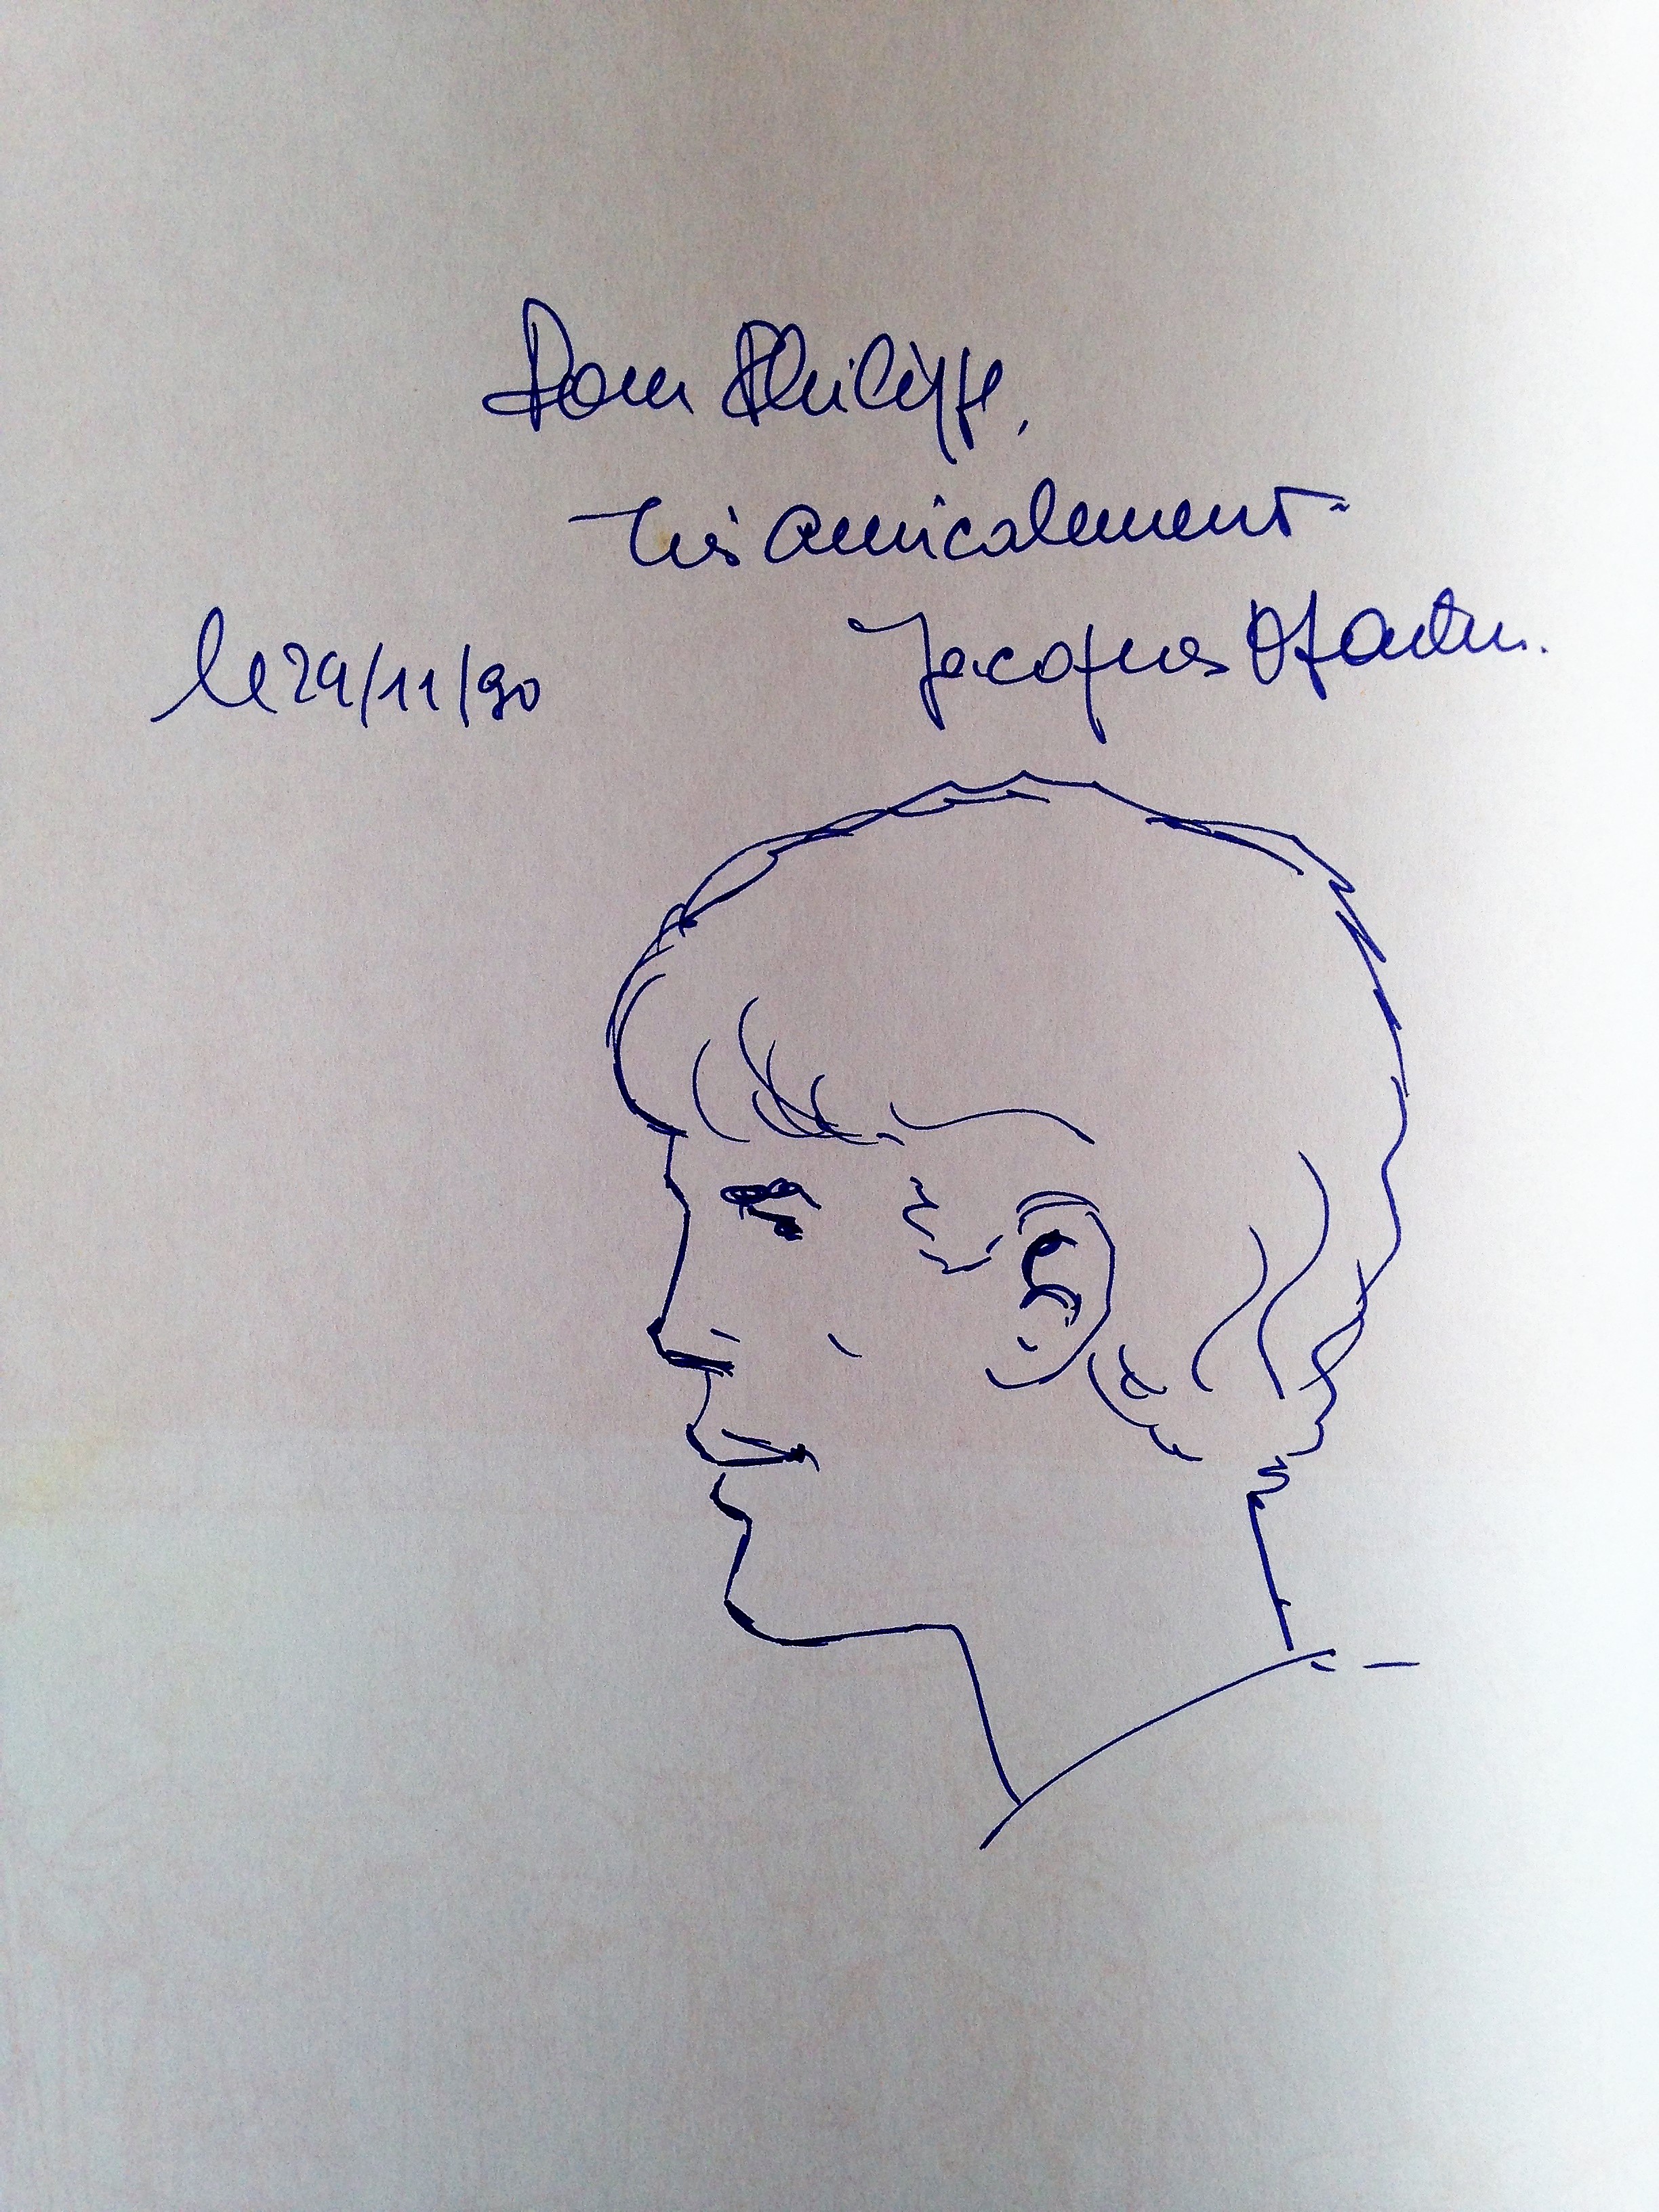 Pour Philippe,
très amicalement
Jacques Martin.
le 29/11/90